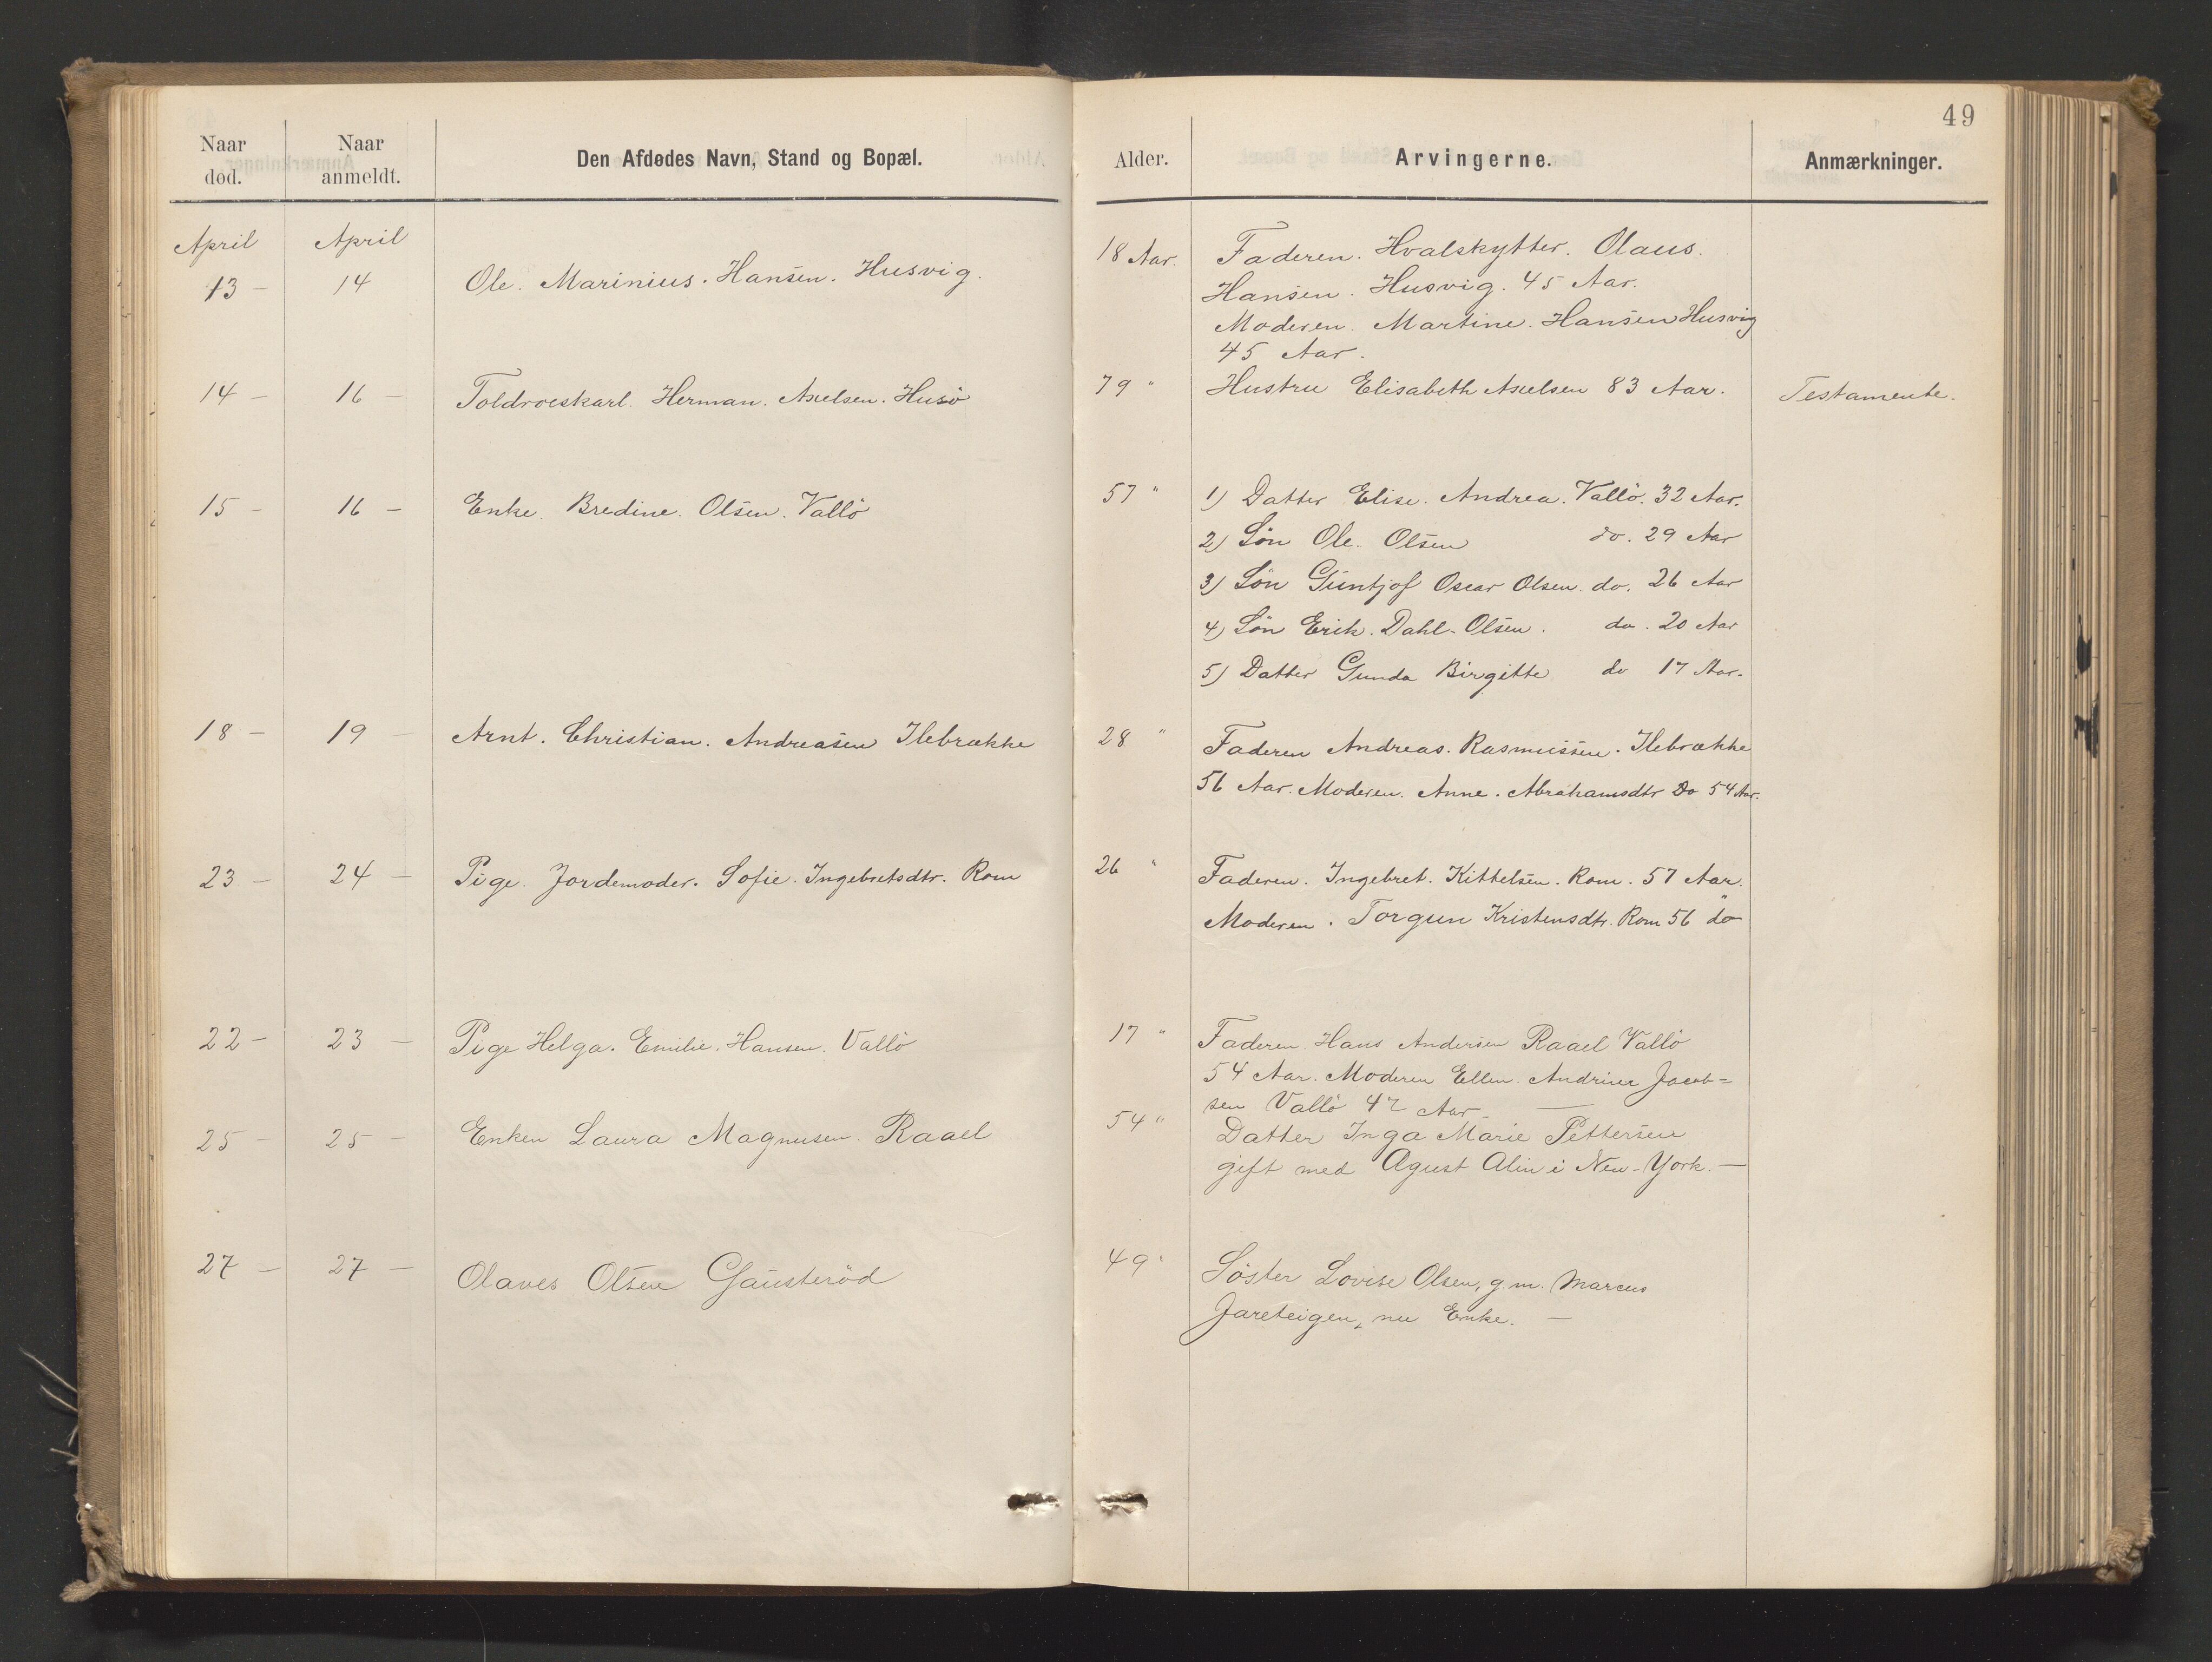 49
Naar død. Naar anmeldt. Den Afdødes Navn, Stand og Bopæl. Alder. Arvingerne. Anmærkninger.
April April
13 - 14 Ole. Marinius. Hansen. Husvig. 18 Aar. Faderen. Hvalskytter. Olaus.
Hansen. Husvig. 45 Aar.
Moderen. Martine. Hansen Husvig
45 Aar.
14 - 16 - Toldroeskarl. Herman. Axelsen. Husö 79 " Hustru Elisabeth Axelsen 83 Aar. Testamente.
15 - 16 - Enke. Bredine. Olsen. Vallö 57 " 1) Datter Elise. Andrea. Vallö. 32 Aar.
2) Sön Ole. Olsen do. 29 Aar
3) Sön Güntjof Oscar Olsen. do. 26 Aar
4) Sön Erik. Dahl-Olsen. do. 20 Aar
5) Datter Gunda Birgitte do 17 Aar.
18 - 19 - Arnt. Christian. Andreasen Ilebrække 28 " Faderen Andreas. Rasmussen. Ilebrække
56 Aar. Moderen. Anne. Abrahamsdtr Do 54 Aar.
23 - 24 - Pige. Jordemoder. Sofie. Ingebretsdtr. Rom 26 " Faderen. Ingebret. Kittelsen. Rom. 57 Aar.
Moderen. Torgun Kristensdtr. Rom 56 do
22 - 23 - Pige Helga. Emilie. Hansen. Vallö 17 " Faderen. Hans Andersen Raael Vallö
54 Aar. Moderen Ellen. Andrine Jacob=
sen Vallö 42 Aar -
25 - 25 - Enken Laura Magnusen. Raael 54 " Datter Inga Marie Pettersen
gift med Agust Alin i New-York. -
27 - 27 - Olaves Olsen Gausteröd 49 " Söster Lovise Olsen, g.m. Marcus
Jareteigen, nu Enke. -